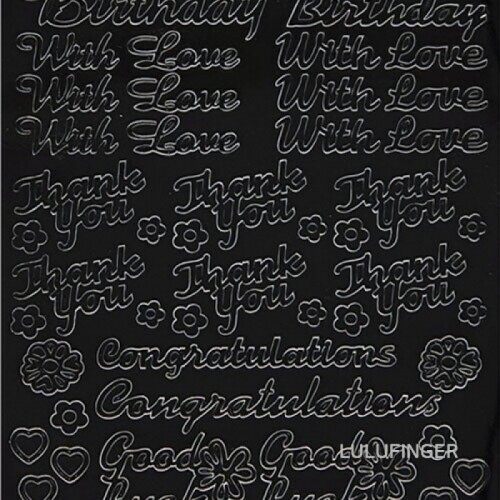 Birthday Birthday
With Love With Love
With Love With Love
With Love With Love
Thank Thank Thank
You You You
Thank Thank Thank
You You You
Congratulations
Congratulations
LULUFINGER
Good Good
Luck Luck